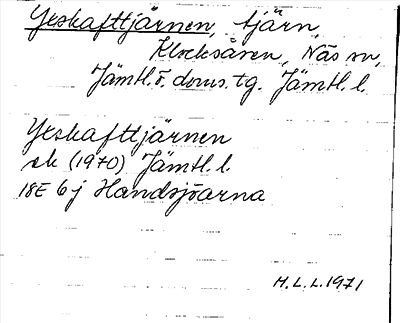 Yxskafttjärnen, tjärn,
Klocksåsen, Näs sn,
Jämtl. ö. doms. tg. Jämtl. l.
Yxskafttjärnen
ek (1970) Jämtl. l.
18E 6j Handsjöarna
H.L.L. 1971